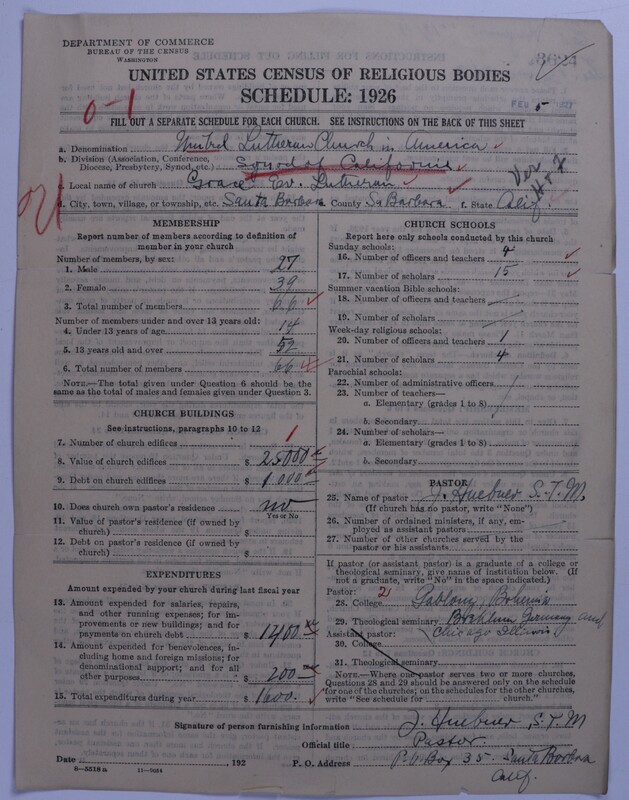 DEPARTMENT OF COMMERCE
BUREAU OF THE CENSUS
WASHINGTON
UNITED STATES CENSUS OF RELIGIOUS BODIES
SCHEDULE: 1926
0-1
FEB 5
FILL OUT A SEPARATE SCHEDULE FOR EACH CHURCH. SEE INSTRUCTIONS ON THE BACK OF THIS SHEET
a. Denomination United Lutheran Church in America
b. Division (Association, Conference, Diocese, Presbytery, Synod, etc.) Synod of California
c. Local name of church Grace Ev. Lutheran
d. City, town, village, or township, etc. Santa Barbara County Sa Barbara f. State Calif
MEMBERSHIP
Report number of members according to definition of member in your church
Number of members, by sex:
1. Male 27
2. Female 39
3. Total number of members 66
Number of members under and over 13 years old:
4. Under 13 years of age 14
5. 13 years old and over 52
6. Total number of members 66
NOTE.—The total given under Question 6 should be the same as the total of males and females given under Question 3.
CHURCH BUILDINGS
See instructions, paragraphs 10 to 12
7. Number of church edifices 1
8. Value of church edifices $ 25000
9. Debt on church edifices $ 1000
10. Does church own pastor's residence no
Yes or No
11. Value of pastor's residence (if owned by church) $
12. Debt on pastor's residence (if owned by church) $
EXPENDITURES
Amount expended by your church during last fiscal year
13. Amount expended for salaries, repairs, and other running expenses; for improvements or new buildings; and for payments on church debt $ 1400
14. Amount expended for benevolences, including home and foreign missions; for denominational support; and for all other purposes $ 200
15. Total expenditures during year $ 1600
CHURCH SCHOOLS
Report here only schools conducted by this church
Sunday schools:
16. Number of officers and teachers 4
17. Number of scholars 15
Summer vacation Bible schools:
18. Number of officers and teachers
19. Number of scholars
Week-day religious schools:
20. Number of officers and teachers 1
21. Number of scholars 4
Parochial schools:
22. Number of administrative officers
23. Number of teachers—
a. Elementary (grades 1 to 8)
b. Secondary
24. Number of scholars—
a. Elementary (grades 1 to 8)
b. Secondary
PASTOR
25. Name of pastor J. Huebner S.T.M.
(If church has no pastor, write "None")
26. Number of ordained ministers, if any, employed as assistant pastors
27. Number of other churches served by the pastor or his assistants
If pastor (or assistant pastor) is a graduate of a college or theological seminary, give name of institution below. (If not a graduate, write "No" in the space indicated.)
Pastor:
28. College Gablonz, Bohemia
29. Theological seminary Breklum, Germany and
Assistant pastor: Chicago Illinois
30. College
31. Theological seminary
NOTE.—Where one pastor serves two or more churches, Questions 28 and 29 should be answered only on the schedule for one of the churches; on the schedules for the other churches, write "See schedule for church."
Signature of person furnishing information J. Huebner, S.T.M
Official title Pastor.
Date , 192 P. O. Address P.O. Box 35. Santa Barbara
Calif.
8-3518a 11-9684